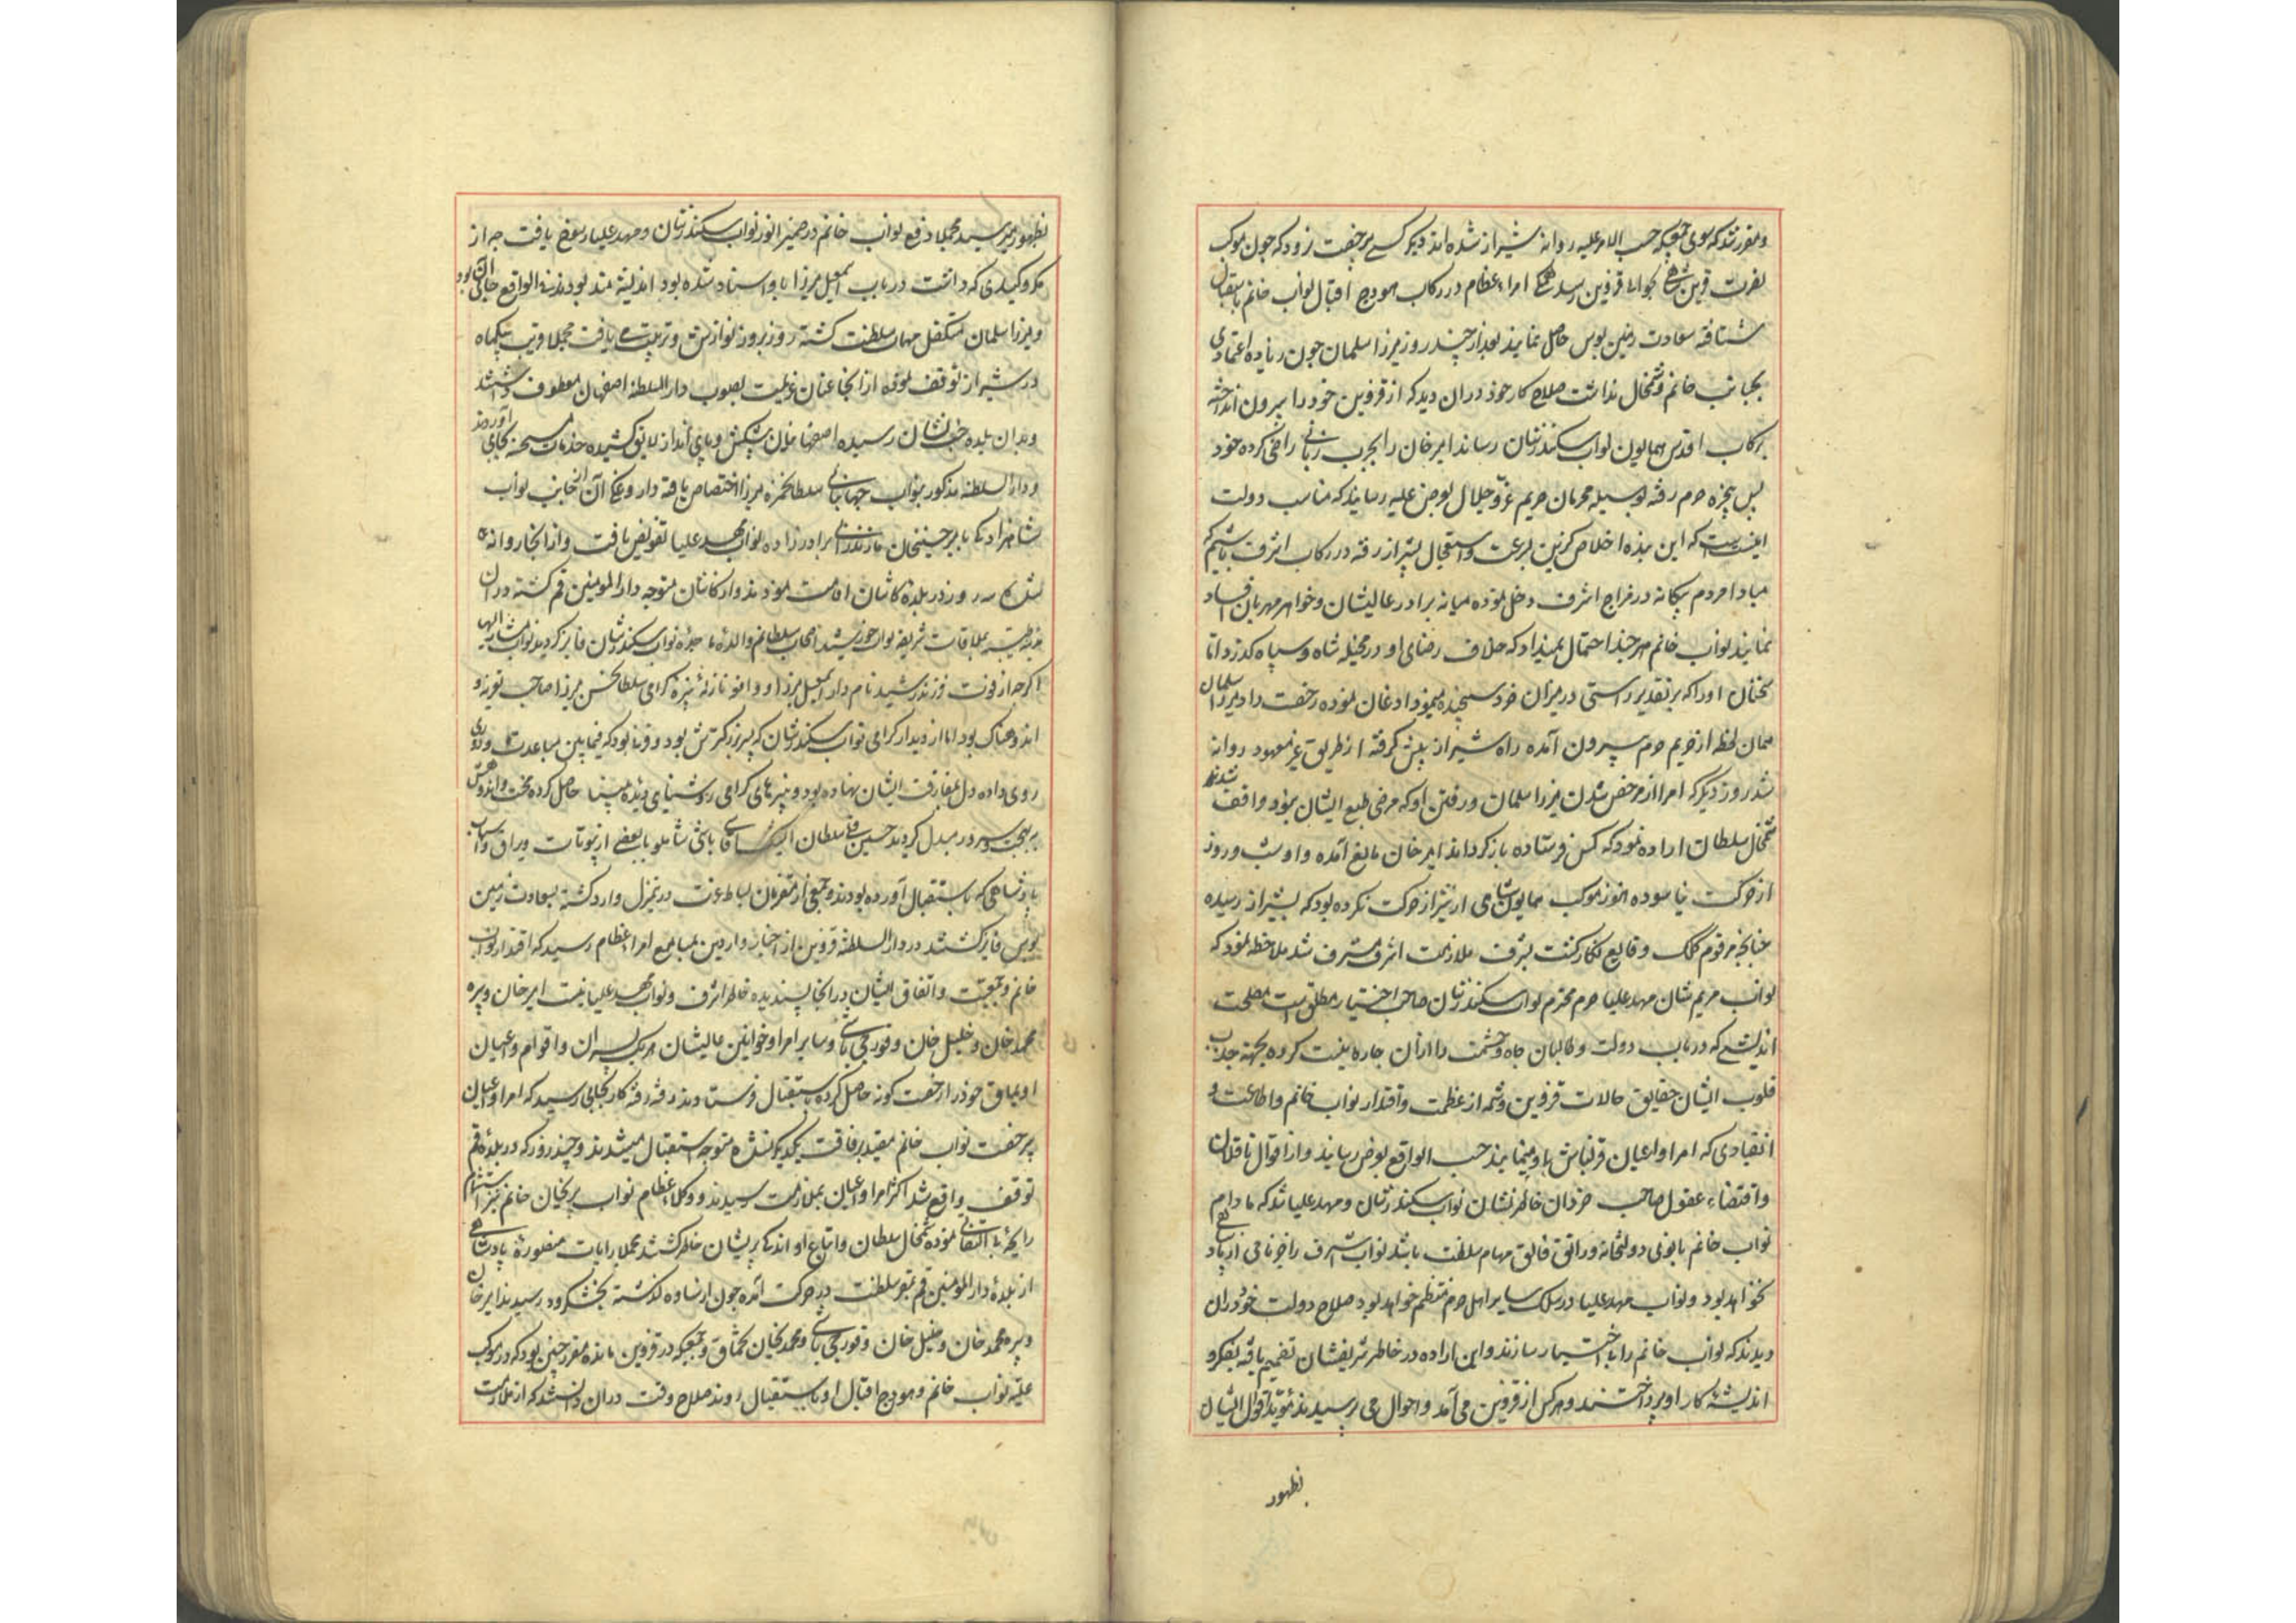 و مقرر شد که سوی جمعی که حسب الامر علیه روانه شیراز شده اند دیگر کسی بی رخصت نرود که چون موکب
نصرت قرین شاهی بحوالی قزوین رسد همگی امراء عظام در رکاب هودج اقبال نواب خانم باستقبال
شتافته سعادت زمین بوس حاصل نمایند بعد از چند روز میرزا سلمان چون زیاده اعتمادی
بجانب خانم و شمخال نداشت صلاح کار خود در آن دید که از قزوین خود را بیرون انداخته
برکاب اقدس همایون نواب سکندرشان رساند امیر خان را بچرب زبانی راضی کرده خود
پس پنجره حرم رفته بوسیله محرمان حریم عزّ و جلال بعرض علیه رسانید که مناسب دولت
اینست که این بنده اخلاص گزین بسرعت و استعجال پیشتر رفته در رکاب اشرف باشیم که
مبادا مردم بیگانه در مزاج اشرف دخل نموده میانه برادر عالیشان و خواهر مهربان افساد
نمایند نواب خانم هر چند احتمال نمیداد که خلاف رضای او در مخیله شاه و سپاه گذرد اما
سخنان او را که بر تقدیر راستی در میزان خرد سنجیده مینمود اذعان نموده رخصت داد میرزا سلمان
همان لحظه از حریم حرم بیرون آمده راه شیراز پیش گرفته از طریق غیر معهود روانه
شد روز دیگر که امرا از مرخص شدن میرزا سلمان و رفتن او که مرضی طبع ایشان نبود واقف شدند
شمخال سلطان اراده نمود که کس فرستاده باز گرداند امیر خان مانع آمده و او شب و روز
از حرکت نیاسوده هنوز موکب همایون شاهی از شیراز حرکت نکرده بود که بشیراز رسیده
چنانچه مرقوم کلک وقایع نگار گشت بشرف ملازمت اشرف مشرف شد ملاحظه نمود که
نواب مریم شان مهد علیا حرم محترم نواب سکندرشان صاحب اختیار مطلق است مصلحت
اندیشی که در باب دولت و طالبان جاه و حشمت را از آن چاره نیست کرده بجهة جذب
قلوب ایشان حقایق حالات قزوین و شمه از عظمت و اقتدار نواب خانم و اطاعت و
انقیادی که امرا و اعیان قزلباش باو مینمایند حسب الواقع بعرض رسانید و از اقوال ناقلان
و اقتضاء عقول صاحب خردان خاطر نشان نواب سکندرشان و مهد علیا شد که مادام
نواب خانم بانوی دولتخانه و راتق و فاتق مهام سلطنت باشد نواب اشرف را جز نامی از پادشاهی
نخواهد بود و نواب مهد علیا در سلک سایر اهل حرم منتظم خواهد بود صلاح دولت خود در آن
دیدند که نواب خانم را بی اختیار سازند و این اراده در خاطر شریفشان تصمیم یافته بفکر و
اندیشه کار او پرداختند و هر کس از قزوین می آمد و احوال می پرسیدند مؤید اقوال ایشان
بظهور
بظهور میرسید مجملا دفع نواب خانم در ضمیر انور نواب سکندرشان و مهد علیا رسوخ یافت چه از
مکر و کیدی که دانست در باب اسمعیل میرزا باو اسناد شده بود اندیشه مند بودند فی الواقع جای آن بود
و میرزا سلمان متکفل مهام سلطنت گشته روز بروز نوازش و تربیت می یافت مجملا قریب بیکماه
در شیراز توقف نموده از آنجا عنان عزیمت بصوب دار السلطنه اصفهان معطوف داشتند
و بدان بلده جنت نشان رسیده اصفهانیان پیشکش و پای انداز لایق کشیده خدمات مستحسنه بجای آوردند
و دار السلطنه مذکور بنواب جهانبانی سلطان حمزه میرزا اختصاص یافته داروغگی آن از جانب نواب
شاهزادگی بامیر حسینخان مازندرانی برادر زاده نواب مهد علیا تفویض یافت و از آنجا روانه
شده سه روز در بلده کاشان اقامت نمودند و از کاشان متوجه دار المومنین قم گشته در آن
بلده طیبه بملاقات شریفه نواب خورشید احتجاب سلطانم والده ماجده نواب سکندرشان فایز گردیدند نواب مشار الیها
اگر چه از فوت فرزند رشید نامدار اسمعیل میرزا و واقعه نازله نبیره گرامی سلطان حسن میرزا صاحب تعزیه و
اندوهناک بود اما از دیدار گرامی نواب سکندرشان که پسر بزرگترش بود و قرنها بود که فیمابین مباعدت و دوری
روی داده دل بمفارقت ایشان نهاده بود و نبیره های گرامی روشنایی دیده بینا حاصل کرده محنت و اندوهش
ببهجت و سرور مبدل گردید حسین قلی سلطان ایشیک آقاسی باشی شاملو با بعضی از بیوتات و یراق و اسباب
پادشاهی که باستقبال آورده بودند و جمعی از مقربان بساط عزت در منزل وارد گشته بسعادت زمین
بوس فایز گشتند در دار السلطنه قزوین از اخبار واردین بمسامع امراء عظام رسید که اقتدار نواب
خانم و جمعیت و اتفاق ایشان در آنجا پسندیده خاطر اشرف و نواب مهد علیا نیست امیر خان و پیره
محمد خان و خلیل خان و قورچی باشی و سایر امرا و خوانین عالیشان هر یک پسران و اقوام و اعیان
اویماق خود را رخصت گونه حاصل کرده باستقبال فرستادند رفته رفته کار بجایی رسید که امرا و اعیان
بی رخصت نواب خانم مقید برفاقت یکدیگر نشده متوجه استقبال میشدند و چند روز که در بلده قم
توقف واقع شد اکثر امرا و اعیان بملازمت رسیدند و وکلاء عظام نواب پریخان خانم نیز استشمام
رایحه بی التفاتی نموده شمخال سلطان و اتباع او اندکی پریشان خاطر گشتند مجملا رایات منصوره پادشاهی
از بلده دار المومنین قم بمقر سلطنت در حرکت آمده چون از ساوه گذشته بخشکرود رسیدند امیر خان
و پیره محمد خان و خلیل خان و قورچی باشی و محمدی خان تخماق و جمعی که در قزوین مانده مقرر چنین بود که در موکب
علیه نواب خانم و هودج اقبال او باستقبال روند صلاح وقت در آن دانستند که از ملازمت